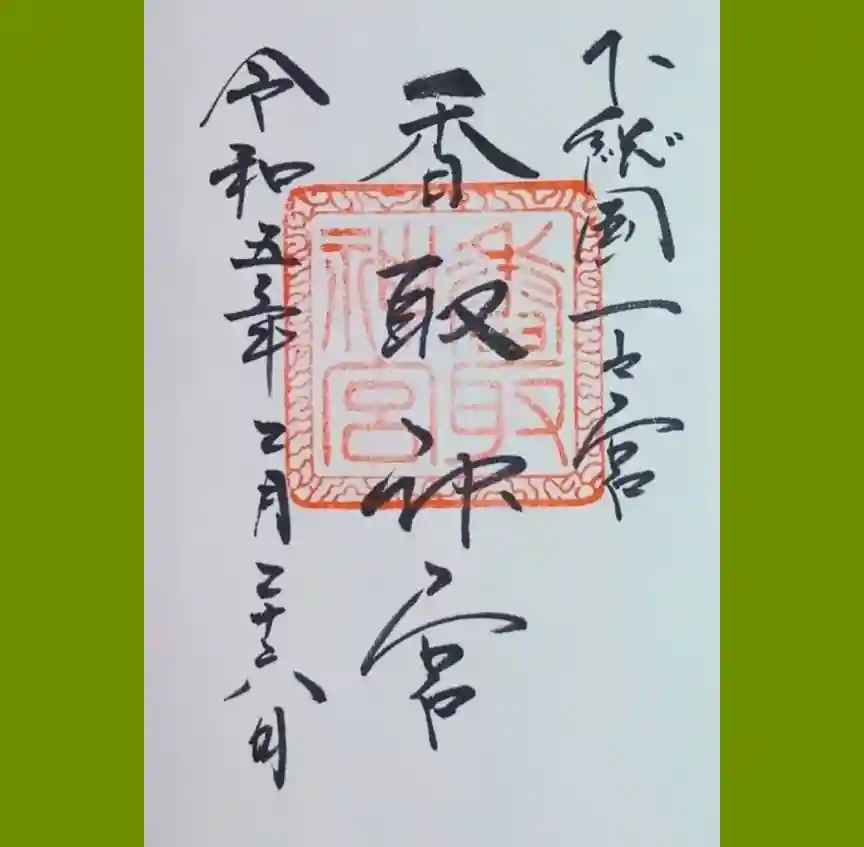 下総国一之宮
香取神宮
令和五年二月二十八日
香取
神宮